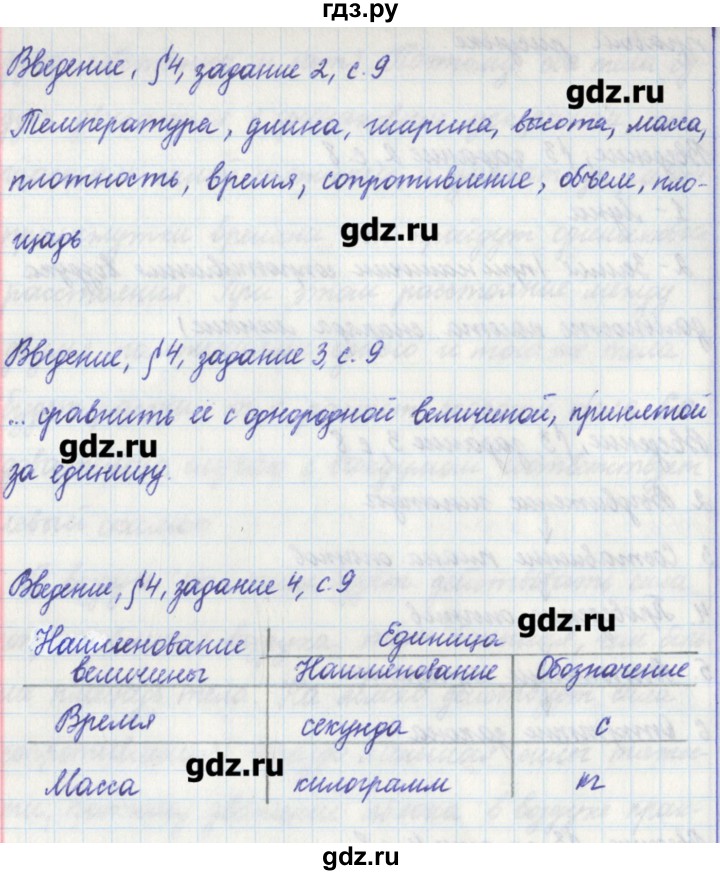 гдз.ру
Введение, §4, задание 2, с.9
gdz.ru
Температура, длина, ширина, высота, масса,
плотность, время, сопротивление, объем, пло-
gdz.ru
щадь
Введение, §4, задание 3, с.9
... сравнить ее с однородной величиной, принятой
gdz.ru
за единицу.
Введение, §4, задание 4, с.9
gdz.ru
Наименование Единица
величины Наименование Обозначение
Время секунда с
gdz.ru
Масса килограмм кг
gdz.ru